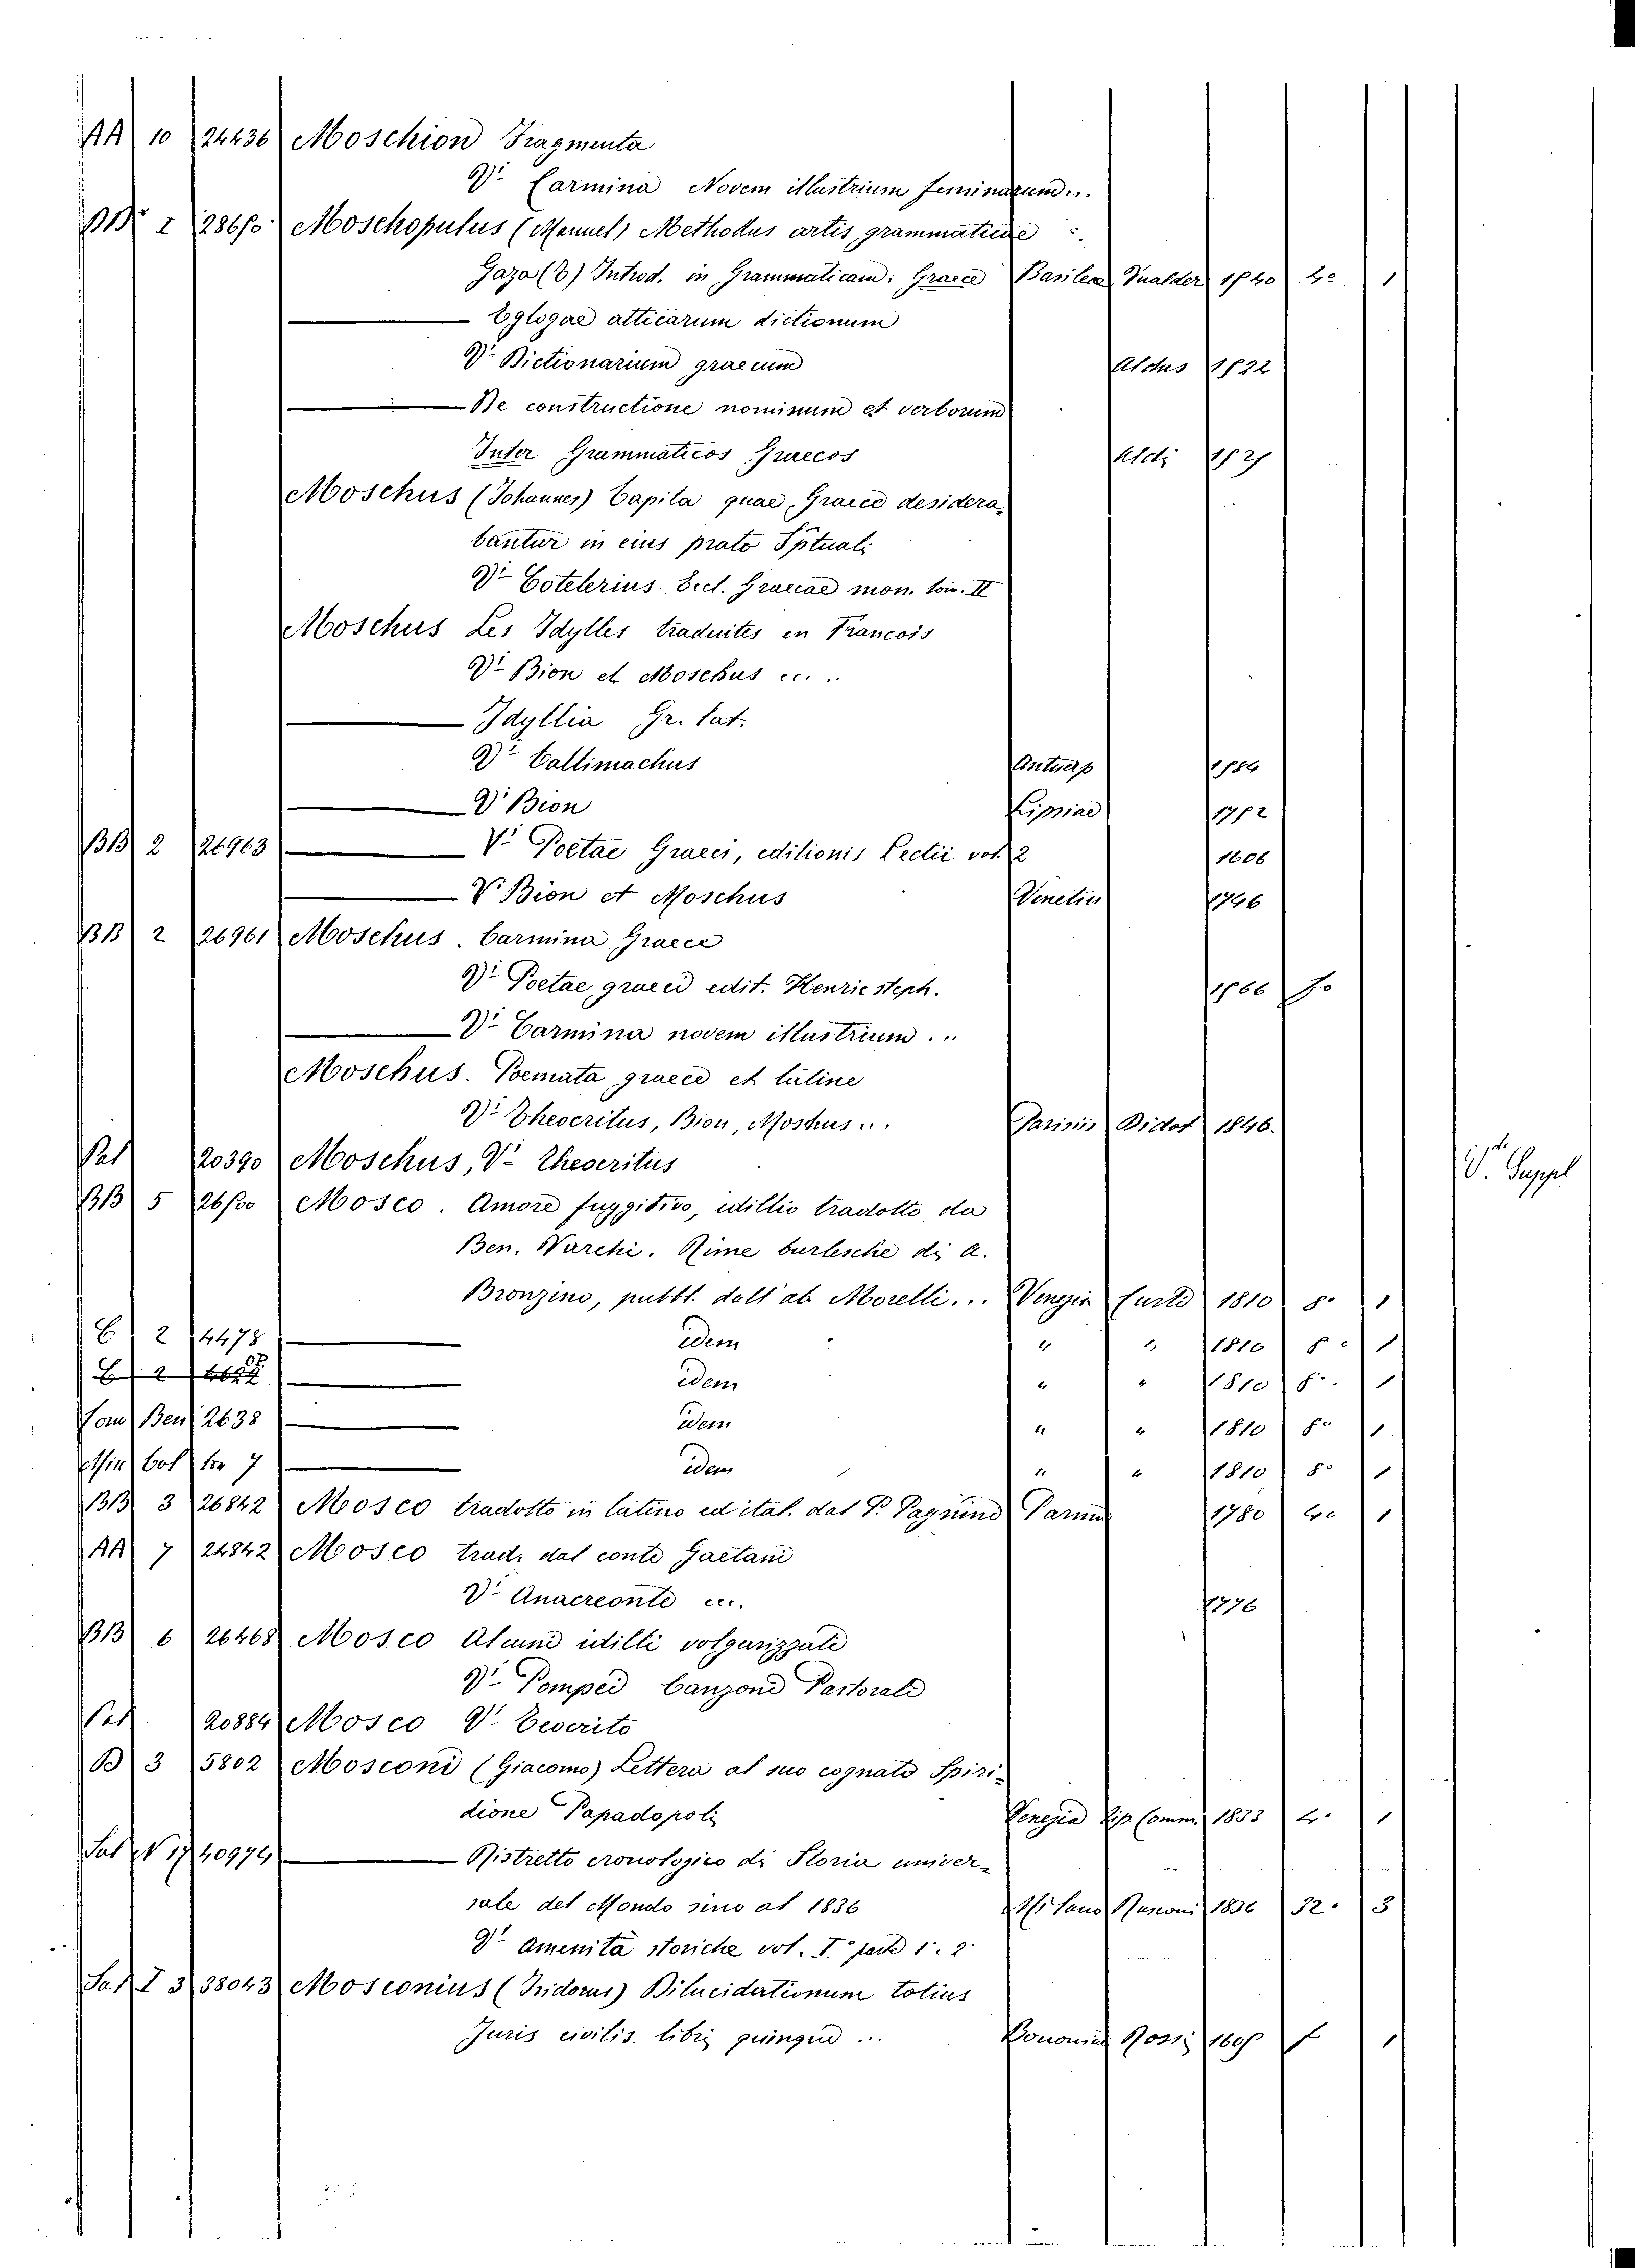 AA 10 24436 Moschion Fragmenta
Vi Carmina Novem illustrium feminarum...
I Moschopulus (Manuel) Methodus artis grammaticae
Gaza (T) Introd. in Grammaticam. Graece Basileae Vualder 1540 4° 1
Eglogae atticarum dictionum
Vi Dictionarium graecum Aldus 1522
De constructione nominum et verborum
Inter Grammaticos Graecos Aldi
Moschus (Johannes) Capita quae Graece desidera-
bantur in eius prato Sptuali
Vi Cotelerius. Eccl. Graecae mon. tom. II
Moschus Les Idylles traduites en Francois
Vi Bion et Moschus ec...
Idyllia Gr. lat.
Vi Callimachus Antuerp 1584
Vi Bion Lipsiae 1752
BB 2 26963 Vi Poetae Graeci, editionis Lectii vol. 2 1606
Vi Bion et Moschus Venetiis 1746
BB 2 26961 Moschus. Carmina Graece
Vi Poetae graeci edit. Henric steph. 1566 fo
Vi Carmina novem illustrium...
Moschus. Poemata graece et latine
Vi Theocritus, Bion, Moschus... Parisiis Didot 1846.
Pat 20390 Moschus, Vi Theocritus V. Suppl
BB 5 26500 Mosco. Amore fuggitivo, idillio tradotto da
Ben. Varchi. Rime burlesche di A.
Bronzino, pubbl. dall'ab Morelli... Venezia Curti 1810 8° 1
E 2 4478 idem " " 1810 8° 1
E 2 idem " " 1810 8° 1
Com Ben 2638 idem " " 1810 8° 1
Min bol 7 idem " " 1810 8° 1
BB 3 26842 Mosco tradotto in latino ed ital. dal P. Pagnini Parma 1780 4° 1
AA 7 24842 Mosco trad. dal conte Gaetani
Vi Anacreonte ec. 1776
BB 6 26468 Mosco Alcuni idilli volgarizzati
Vi Pompei Canzoni Pastorali
Pat 20884 Mosco Vi Teocrito
B 3 5802 Mosconi (Giacomo) Lettera al suo cognato Spiri-
dione Papadopoli Venezia Tip Comm. 1833 4° 1
Sal N 17 40974 Ristretto cronologico di Storia univer-
sale del Mondo sino al 1836 Milano Rusconi 1836 32° 3
Vi Amenità storiche vol. I° parte 1. 2
Sal I 3 38043 Mosconius (Isidorus) Dilucidationum totius
Juris civilis libri quinque... Bononiae Rossi f 1